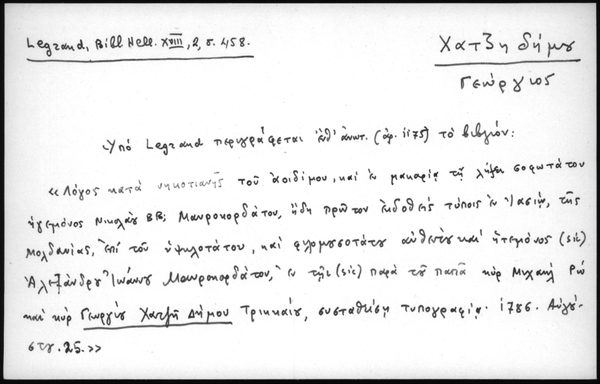 Legrand, Bibl Hell. XVIII, 2, σ. 458.
Χατζη δήμου
Γεώργιος
Ὑπό Legrand περιγράφεται ἔνθ' ἀνωτ. (ἀρ. 1175) τὸ βιβλίον:
«Λόγος κατὰ νικοτιανῆς τοῦ ἀοιδίμου, καὶ ἐν μακαρίᾳ τῇ λήξει σοφωτάτου
ἡγεμόνος Νικολάου Β Β; Μαυροκορδάτου, ἤδη πρῶτον ἐκδοθεὶς τύποις ἐν Ἰασίῳ, τῆς
Μολδανίας, ἐπὶ τοῦ ὑψηλοτάτου, καὶ αὐθέντου καὶ ἡγεμόνος (sic)
Ἀλεξάνδρου Ἰωάννου Μαυροκορδάτου, ἐν τῇ (sic) παρὰ τοῦ παπᾶ κύρ Μιχαὴλ
καὶ κὺρ Γεωργίου Χατζῆ Δήμου Τρικκαίου, συσταθείσῃ τυπογραφίᾳ. 1786. Αὐγού-
στου. 25.»